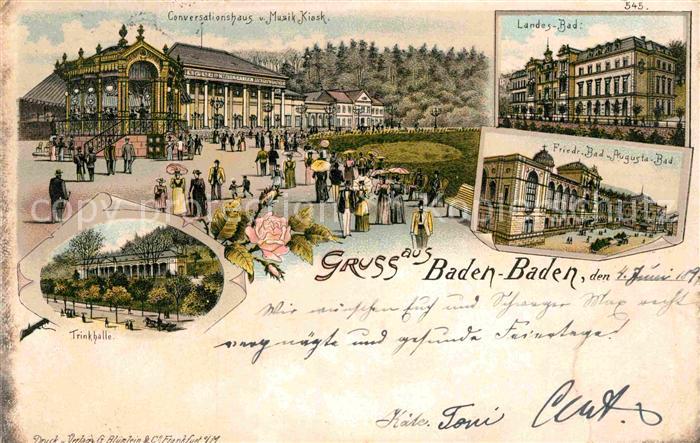 545.
Conversationshaus u. Musik Kiosk.
Landes-Bad.
Friedr.-Bad u. Augusta-Bad.
Trinkhalle.
Gruss aus Baden-Baden, den 4. Juni
Wir wünschen Euch und Schwager Max recht
vergnügte und gesunde Feiertage!
Käte. Toni
Druck u. Verlag G. Blümlein & Co. Frankfurt a/M
copyright